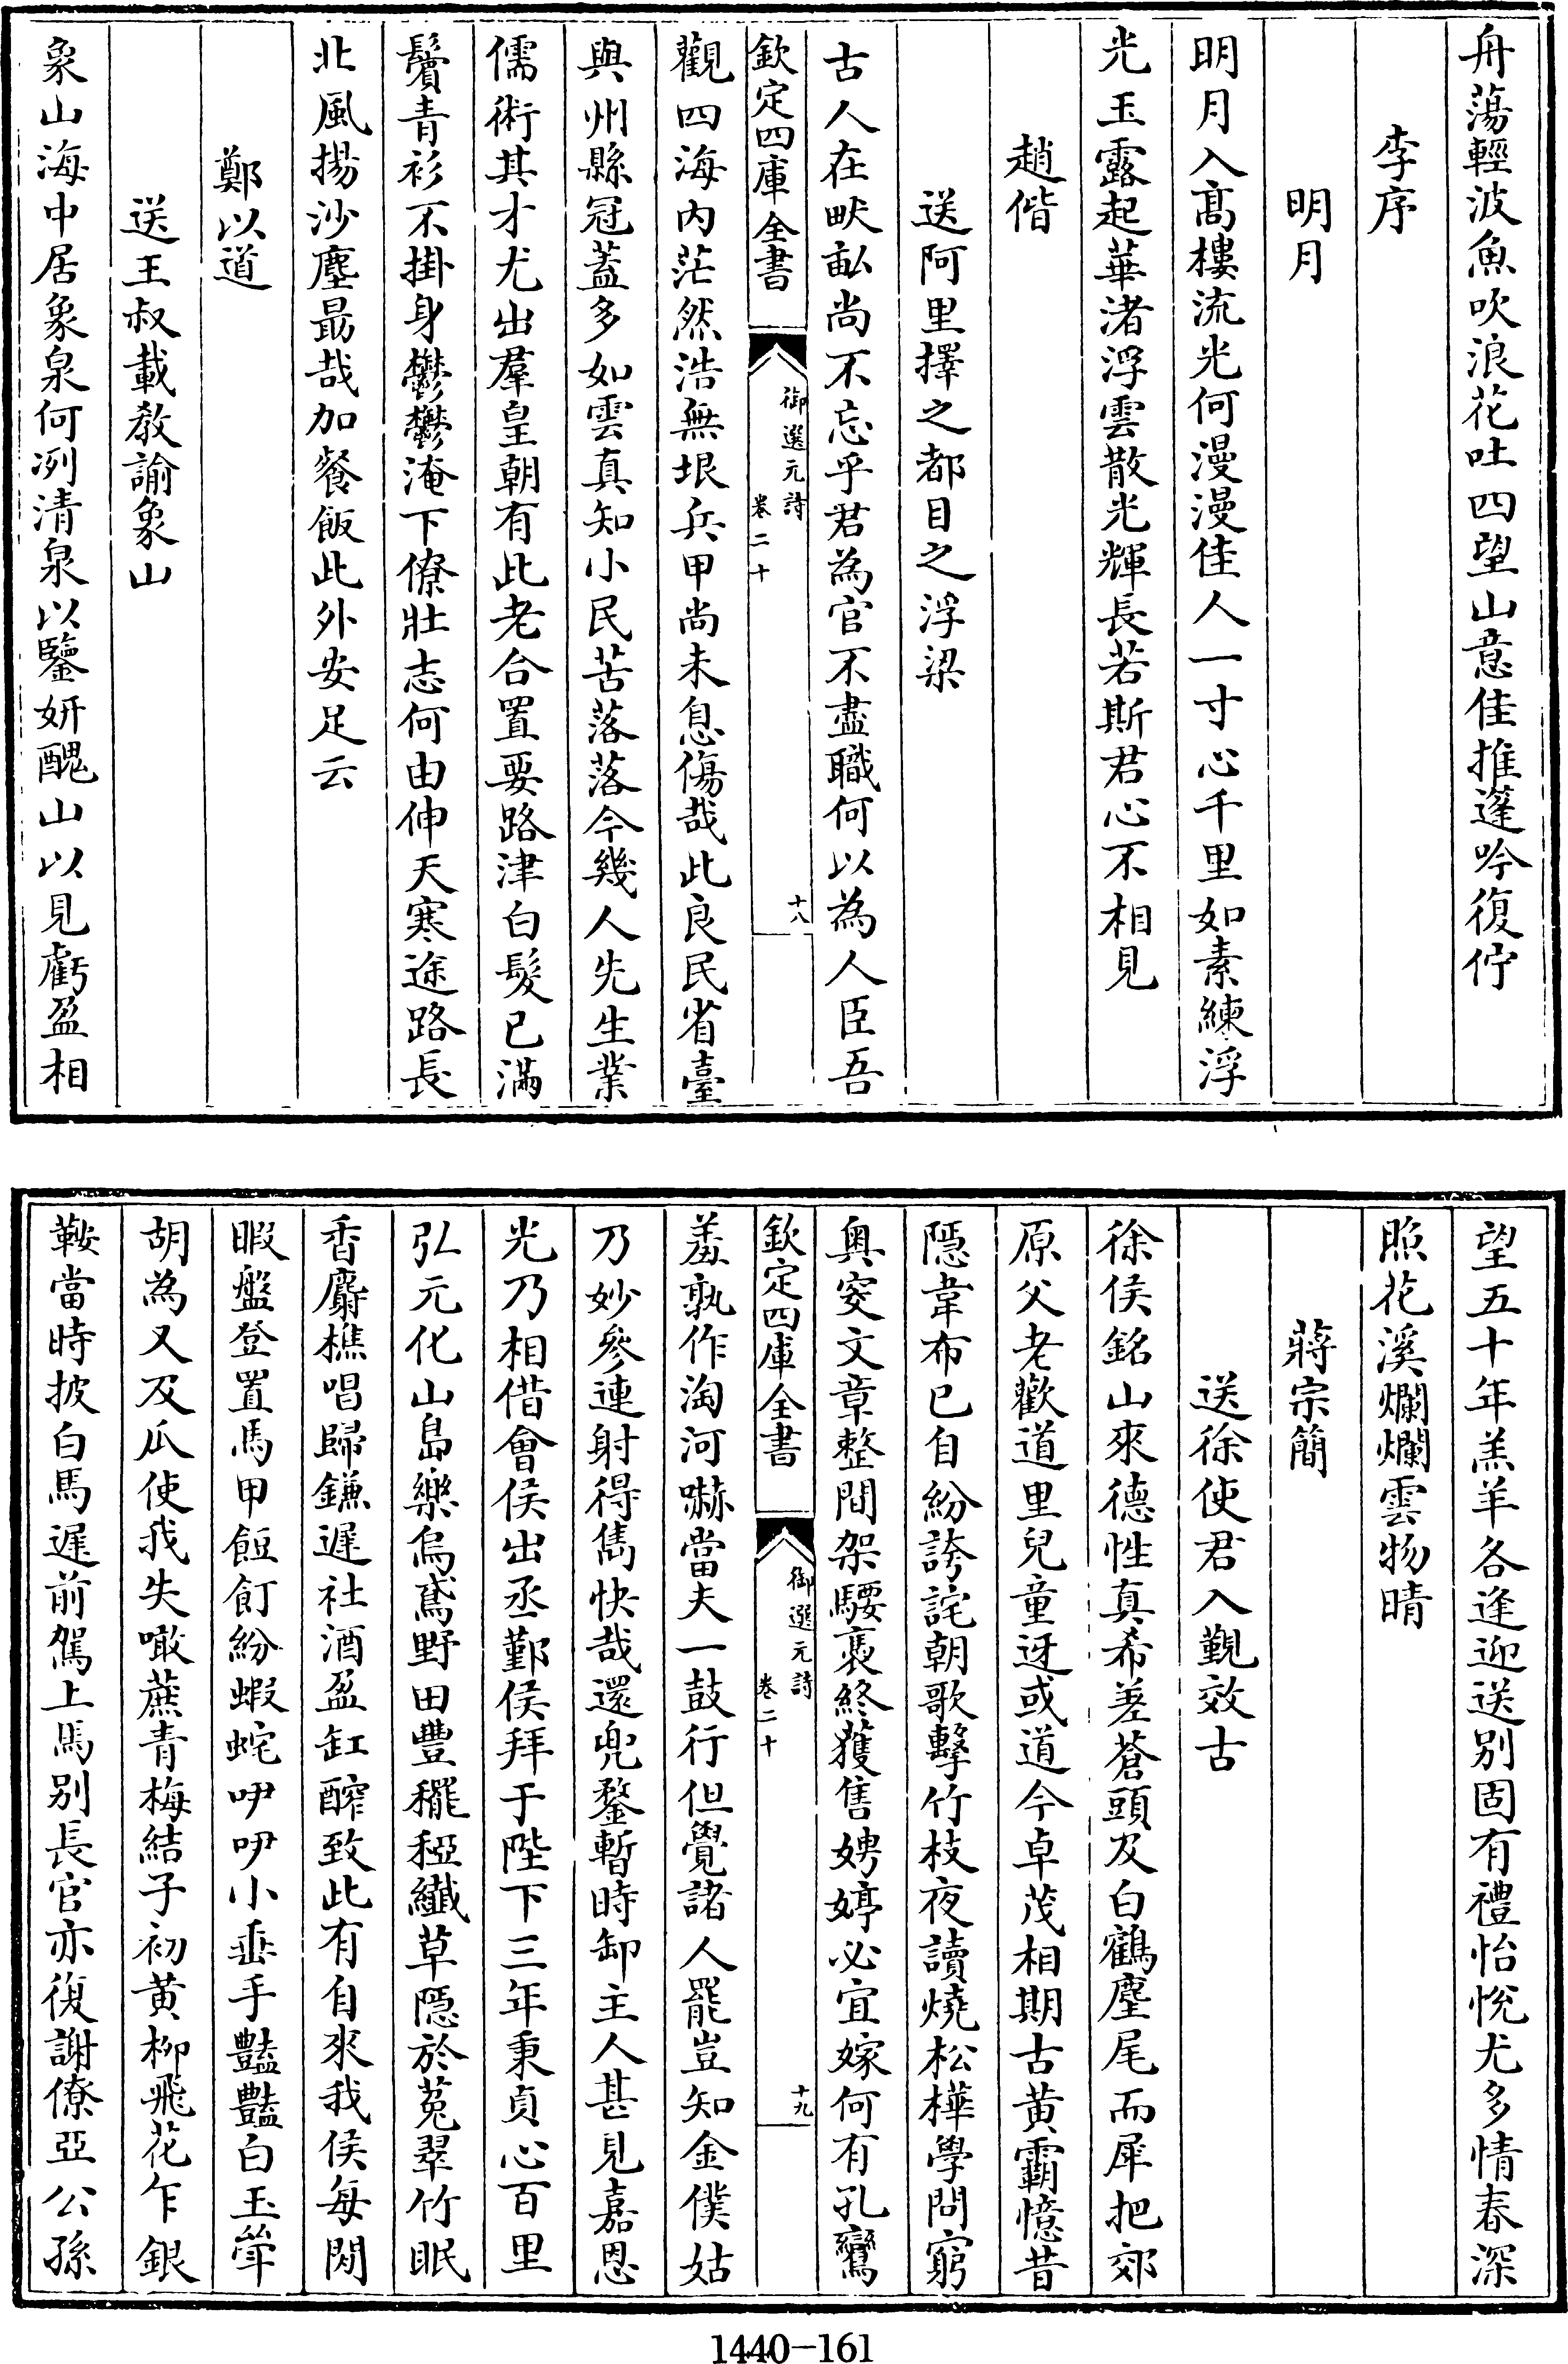 舟蕩輕波魚吹浪花吐四望山意佳推蓬吟復佇
李序
明月
明月入高樓流光何漫漫佳人一寸心千里如素練浮
光玉露起華渚浮雲散光輝長若斯君心不相見
趙偕
送阿里擇之都目之浮梁
古人在畎畝尚不忘乎君為官不盡職何以為人臣吾
欽定四庫全書
御選元詩
卷二十
十八
觀四海內茫然浩無垠兵甲尚未息傷哉此良民省臺
與州縣冠蓋多如雲真知小民苦落落今幾人先生業
儒術其才尤出羣皇朝有此老合置要路津白髮已滿
鬢青衫不掛身鬱鬱淹下僚壯志何由伸天寒途路長
北風揚沙塵勗哉加餐飯此外安足云
鄭以道
送王叔載教諭象山
象山海中居象泉何冽清泉以鑒妍醜山以見虧盈相
望五十年羔羊各逢迎送別固有禮怡悅尤多情春深
照花溪爛爛雲物晴
蔣宗簡
送徐使君入覲效古
徐侯銘山來德性真希差蒼頭及白鶴麈尾而犀把郊
原父老歡道里兒童迓或道今卓茂相期古黃霸憶昔
隱韋布已自紛誇詫朝歌擊竹枝夜讀燒松樺學問窮
奥窔文章整間架騕褭終獲售娉婷必宜嫁何有孔鸞
羞孰作淘河嚇當夫一鼓行但覺諸人罷豈知金僕姑
乃妙參連射得雋快哉還兜鍪暫時卸主人甚見嘉恩
光乃相借會侯出丞鄞侯拜于陛下三年秉貞心百里
弘元化山島樂烏鳶野田豐䆉稏纎草隱於菟翠竹眠
香麝樵唱歸鎌遲社酒盈缸醡致此有自來我侯每閒
暇盤登置馬甲飣紛蝦蛇吚吚小垂手豔豔白玉斝
胡為又及瓜使我失噉蔗青梅結子初黃柳飛花乍銀
鞍當時披白馬遲前駕上馬別長官亦復謝僚亞公孫
欽定四庫全書
御選元詩
卷二十
十九
1440-161